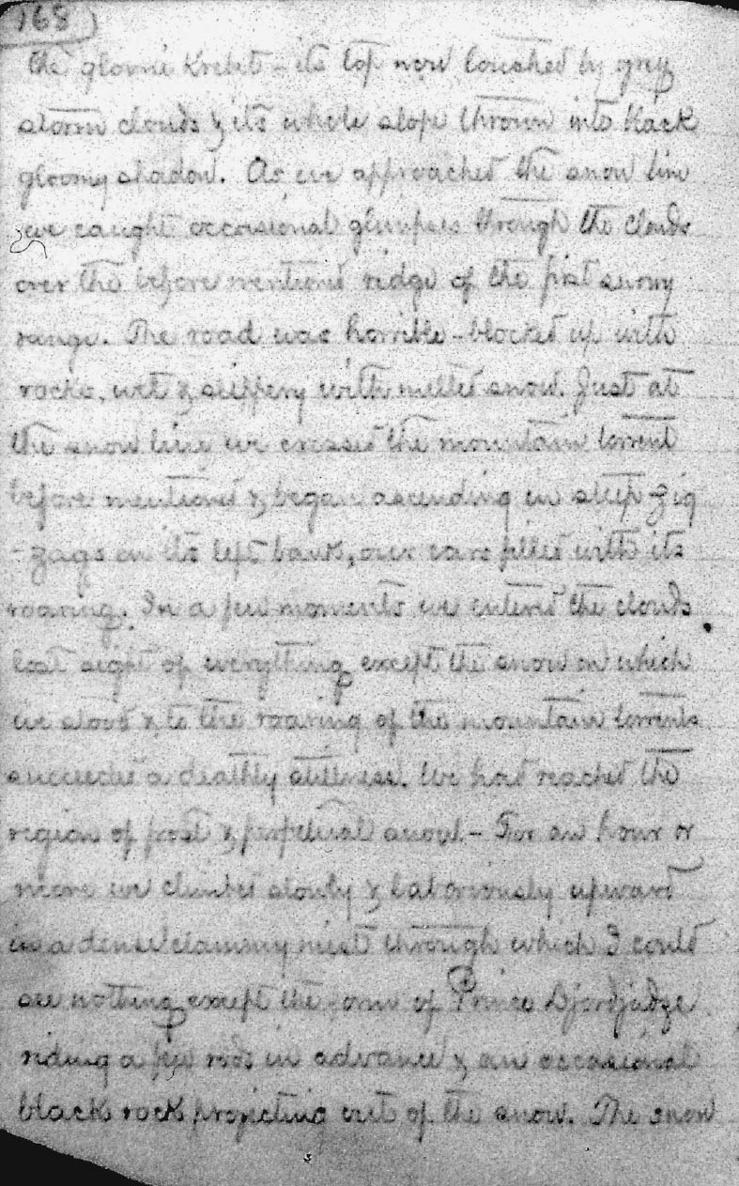 168
the glavni Krebet - its top now touched by grey
storm clouds & its whole slope thrown into black
gloomy shadow. As we approached the snow line
we caught occasional glimpses through the clouds
over the before mentioned ridge of the first snowy
range. The road was horrible - blocked up with
rocks, wet & slippery with melted snow. Just at
the snow line we crossed the mountain torrent
before mentioned & began ascending in steep zig
-zags on its left bank, our ears filled with its
roaring. In a few moments we entered the clouds
lost sight of everything except the snow on which
we stood & to the roaring of the mountain torrents
succeeded a deathly stillness. We had reached the
region of frost & perpetual snow. - For an hour or
more we climbed slowly & laboriously upward
in a dense clammy mist through which I could
see nothing except the form of Prince Djordjadze
riding a few rods in advance & an occasional
black rock projecting out of the snow. The snow